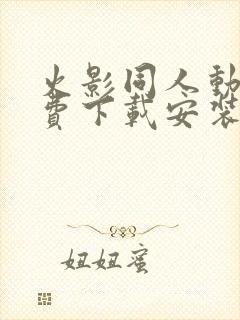 火影同人動
費下載安裝
妞妞蜜